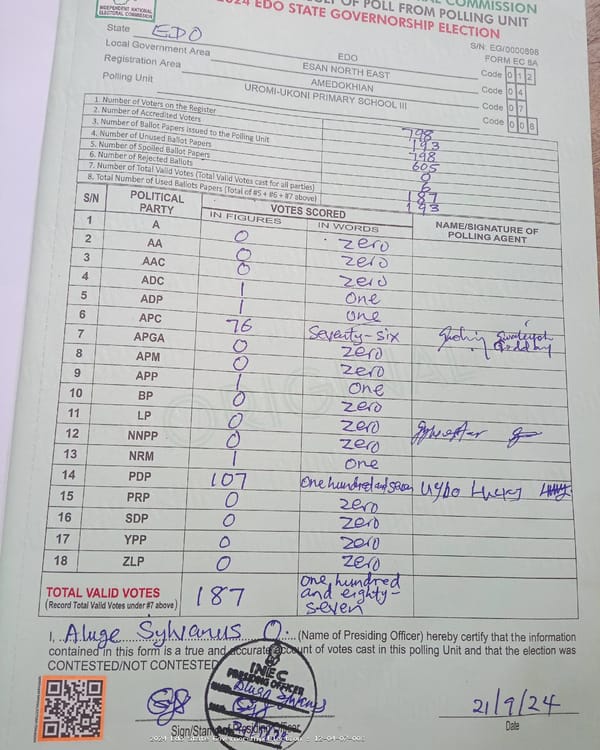 INDEPENDENT NATIONAL
ELECTORAL COMMISSION
COMMISSION
OF POLL FROM POLLING UNIT
2024 EDO STATE GOVERNORSHIP ELECTION
S/N: EG/0000808
FORM EC 8A
State EDO EDO
Local Government Area ESAN NORTH EAST Code 0 1 2
Registration Area AMEDOKHIAN Code 0 4
Polling Unit UROMI-UKONI PRIMARY SCHOOL III Code 0 7
Code 0 0 8
1. Number of Voters on the Register 798
2. Number of Accredited Voters 193
3. Number of Ballot Papers issued to the Polling Unit 798
4. Number of Unused Ballot Papers 605
5. Number of Spoiled Ballot Papers 0
6. Number of Rejected Ballots 6
7. Number of Total Valid Votes (Total Valid Votes cast for all parties) 187
8. Total Number of Used Ballots Papers (Total of #5 + #6 + #7 above) 193
S/N POLITICAL PARTY VOTES SCORED NAME/SIGNATURE OF POLLING AGENT
IN FIGURES IN WORDS
1 A 0 Zero
2 AA 0 Zero
3 AAC 0 Zero
4 ADC 1 One
5 ADP 1 One
6 APC 76 Seventy-six
7 APGA 0 Zero
8 APM 0 Zero
9 APP 1 One
10 BP 0 Zero
11 LP 0 Zero
12 NNPP 0 Zero
13 NRM 1 One
14 PDP 107 One hundred and seven Ugbo Lucky
15 PRP 0 Zero
16 SDP 0 Zero
17 YPP 0 Zero
18 ZLP 0 Zero
ORIGINAL
TOTAL VALID VOTES 187 One hundred and eighty-seven
(Record Total Valid Votes under #7 above)
I, Aluge Sylvanus O. (Name of Presiding Officer) hereby certify that the information
contained in this form is a true and accurate account of votes cast in this polling Unit and that the election was
CONTESTED/NOT CONTESTED
INEC
PRESIDING OFFICER
21/9/24
Sign/Stamp of Presiding Officer
Date